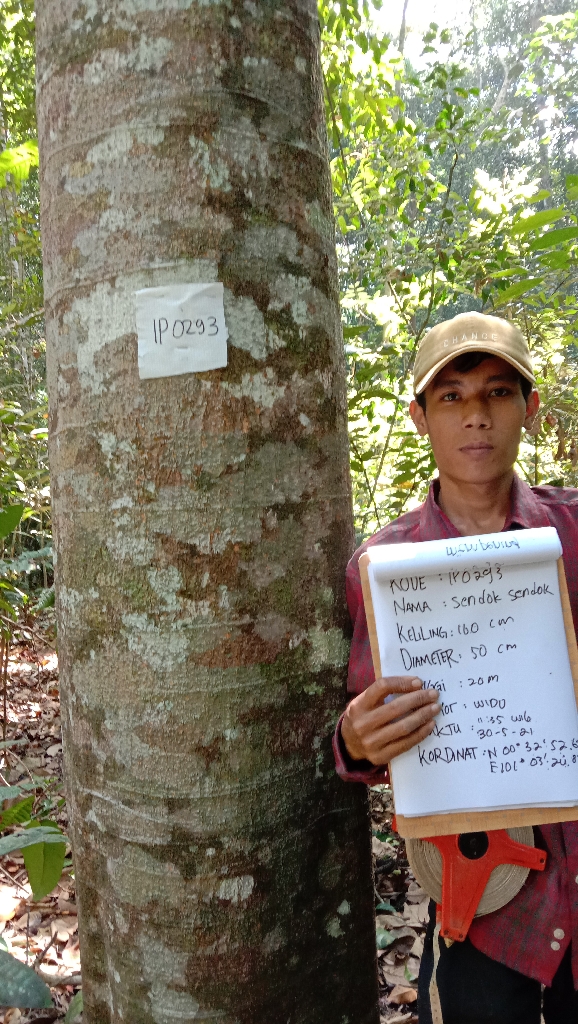 IP0293
CHANGE
KODE : IP0293
NAMA : Sendok Sendok
KELILING : 160 cm
DIAMETER : 50 cm
GGI : 20 m
OT : WIDO
KTU : 11:35 WIB
30-5-21
KORDINAT : N 00° 32' 52.6
E 101° 03' 20.8